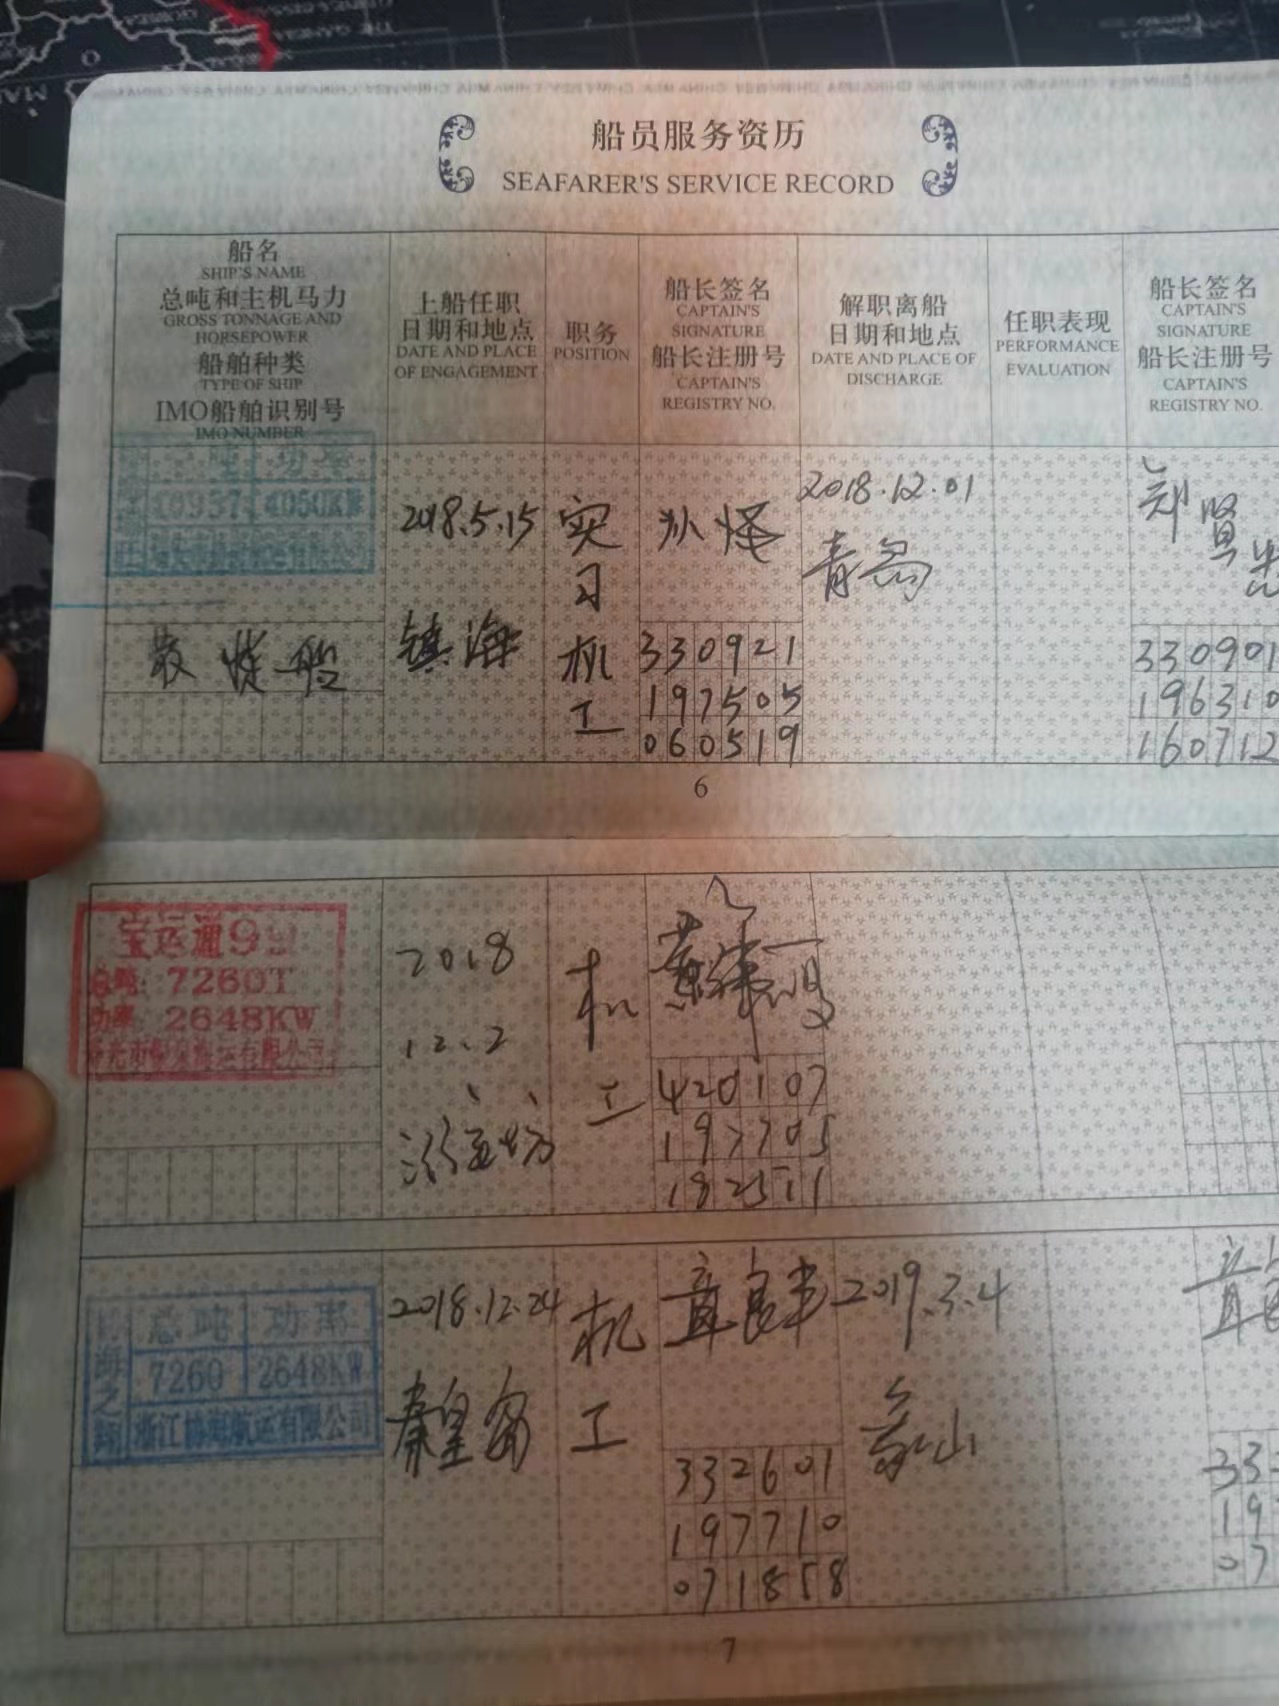 船员服务资历
SEAFARER'S SERVICE RECORD
船名
SHIP'S NAME
总吨和主机马力
GROSS TONNAGE AND
HORSEPOWER
船舶种类
TYPE OF SHIP
IMO船舶识别号
IMO NUMBER
上船任职
日期和地点
DATE AND PLACE
OF ENGAGEMENT
职务
POSITION
船长签名
CAPTAIN'S
SIGNATURE
船长注册号
CAPTAIN'S
REGISTRY NO.
解职离船
日期和地点
DATE AND PLACE OF
DISCHARGE
任职表现
PERFORMANCE
EVALUATION
船长签名
CAPTAIN'S
SIGNATURE
船长注册号
CAPTAIN'S
REGISTRY NO.
吨 功率
4050KW
散货船
2018.5.15
镇海
实
习
机
工
330921
197505
060519
2018.12.01
青岛
330901
196310
160712
6
宝运通
总吨: 7260T
功率 2648KW
2018
12.2
潍坊
机
工
420107
197705
182511
总吨 功率
7260 2648KW
海之
浙江 海航运有限公司
2018.12.24
秦皇岛
机
工
章良
332601
197710
071858
2019.3.4
象山
33
19
07
7